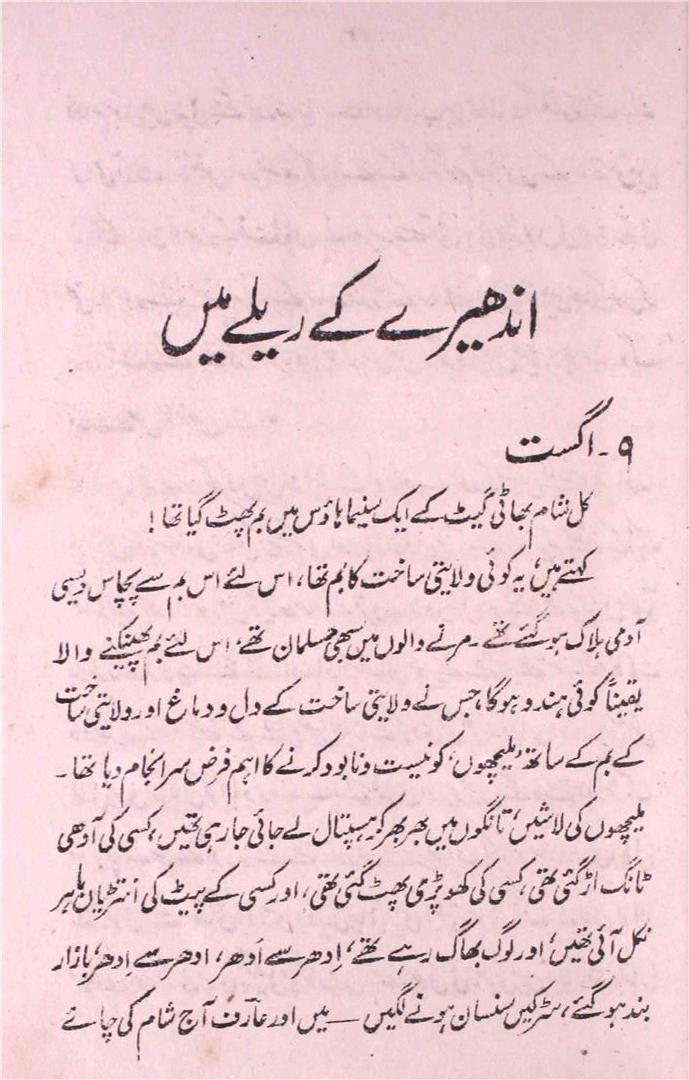 اندھیرے کے ریلے میں
۹ - اگست
کل شام بھاٹی گیٹ کے ایک سنیما ہاؤس میں بم پھٹ گیا تھا !
کہتے ہیں، یہ کوئی ولایتی ساخت کا بم تھا، اس لئے اس بم سے پچاس دیسی
آدمی ہلاک ہو گئے تھے ۔ مرنے والوں میں سبھی مسلمان تھے، اس لئے بم پھینکنے والا
یقیناً کوئی ہندو ہوگا، جس نے ولایتی ساخت کے دل و دماغ اور ولایتی ساخت
کے بم کے ساتھ ’ملیچھوں‘ کو نیست و نابود کرنے کا اہم فرض سرانجام دیا تھا ۔
ملیچھوں کی لاشیں، تانگوں میں بھر بھر کر ہسپتال لے جائی جا رہی تھیں، کسی کی آدھی
ٹانگ اڑ گئی تھی، کسی کی کھوپڑی پھٹ گئی تھی، اور کسی کے پیٹ کی انتڑیاں باہر
نکل آئی تھیں، اور لوگ بھاگ رہے تھے، اِدھر سے اُدھر، ادھر سے اِدھر، بازار
بند ہو گئے، سڑکیں سنسان ہونے لگیں — میں اور عارف آج شام کی چائے